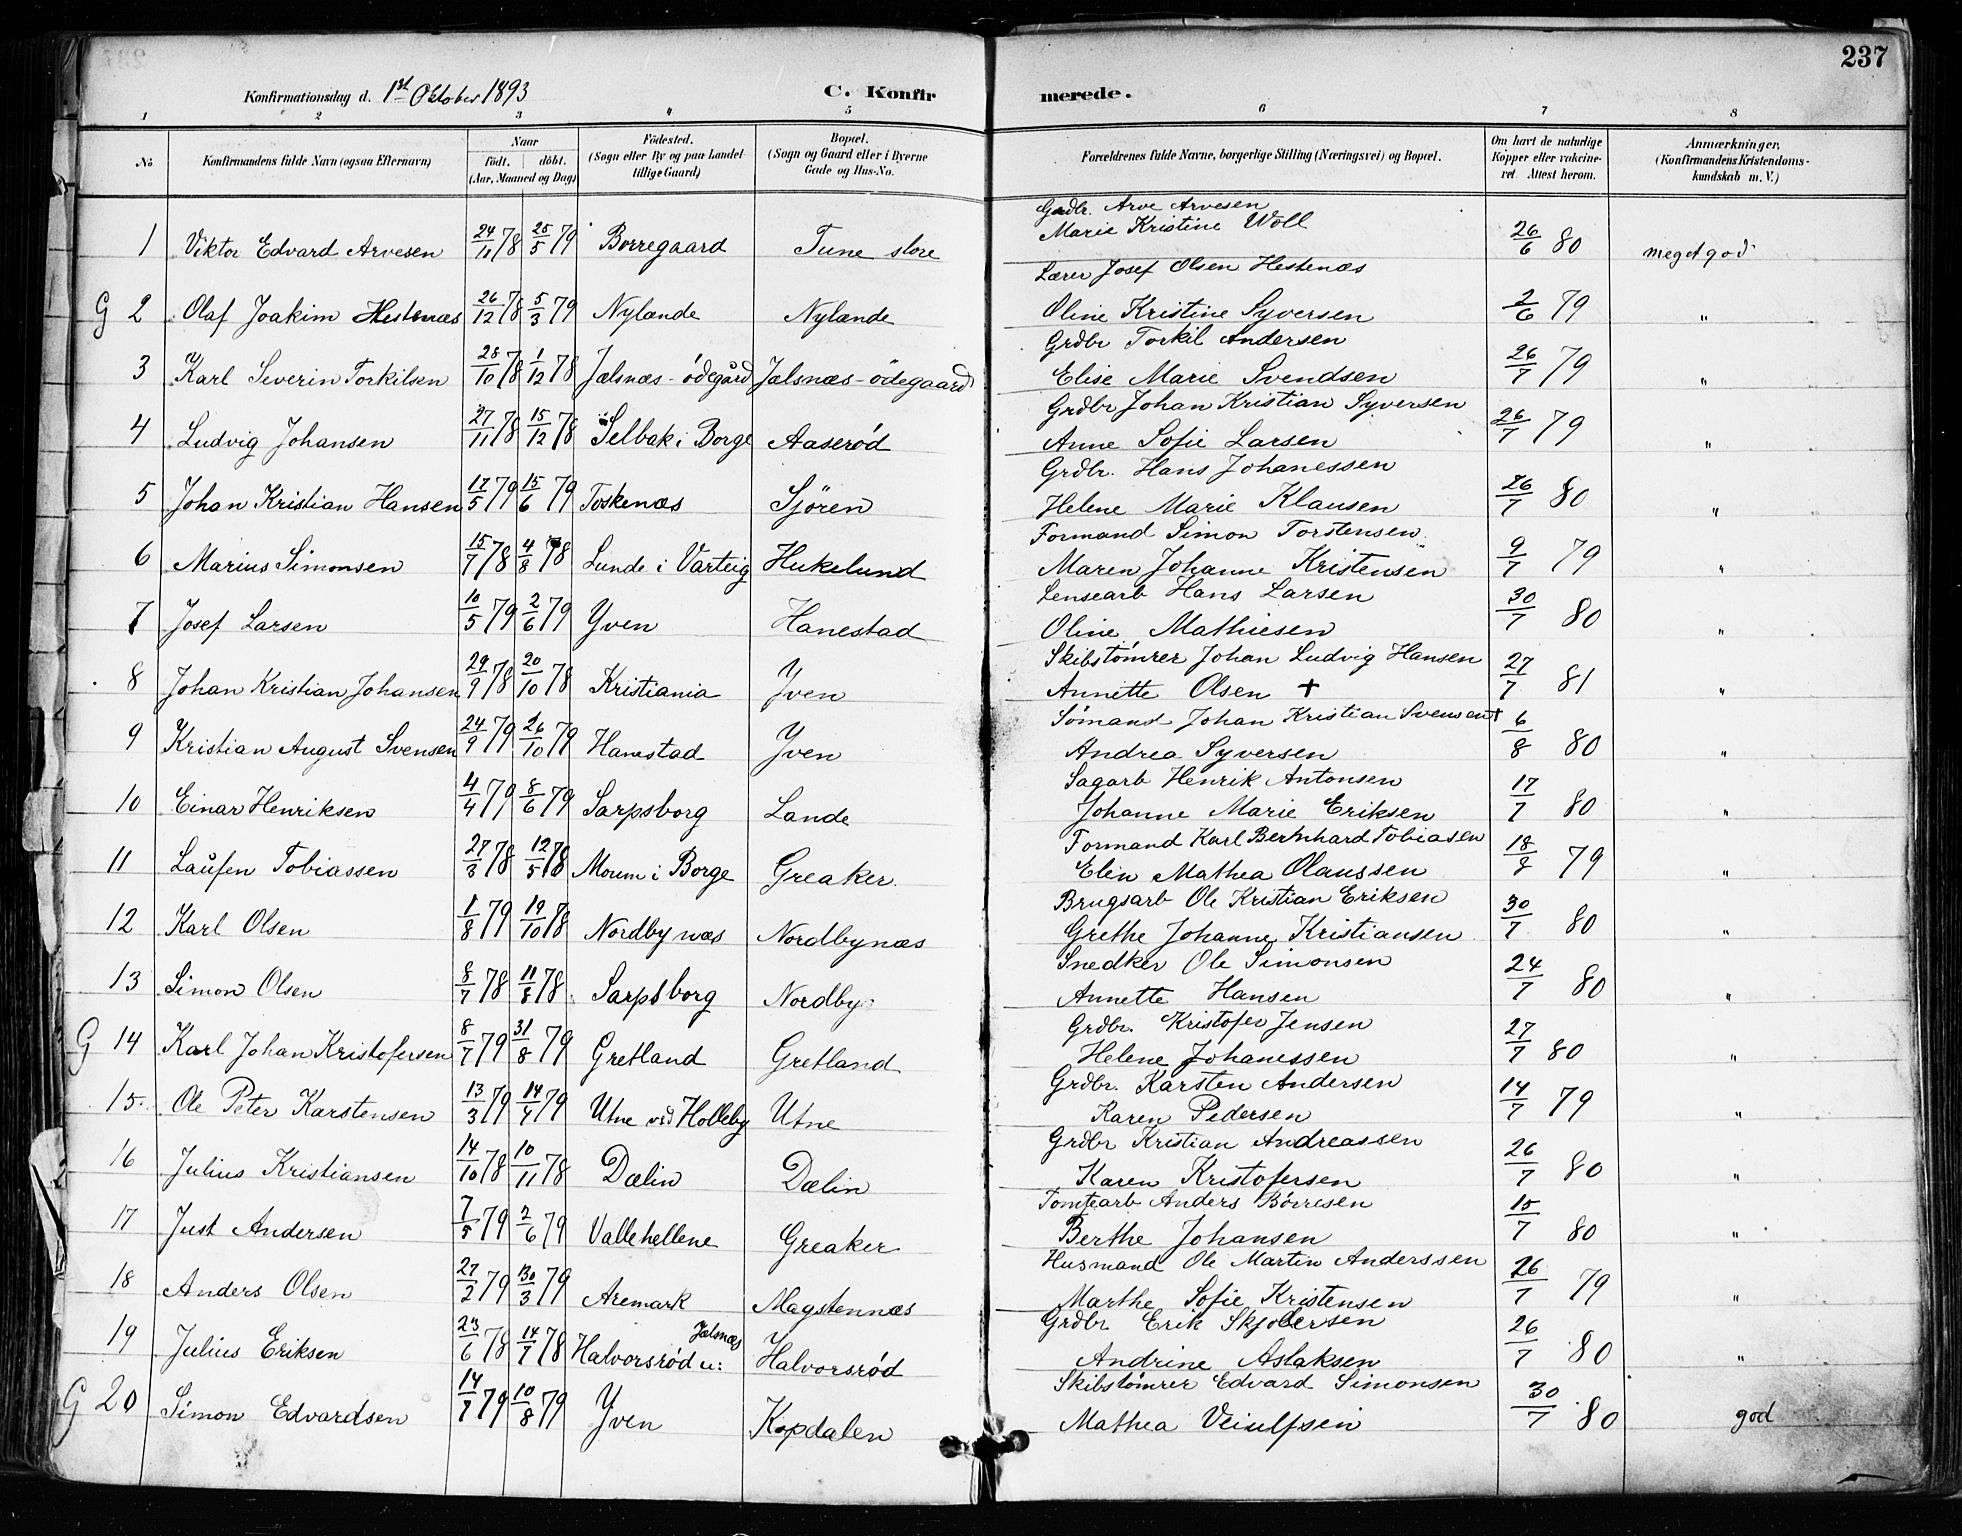 237
Konfirmationsdag d. 1st Oktober 1893 C. Konfirmerede.
1 2 3 4 5 6 7 8
No Konfirmandens fulde Navn (ogsaa Efternavn) Naar födt. döbt. (Aar, Maaned og Dag) Födested. (Sogn eller By og paa Landet tillige Gaard) Bopæl. (Sogn og Gaard eller i Byerne Gade og Hus-No. Forældrenes fulde Navne, borgerlige Stilling (Næringsvei) og Bopæl. Om havt de naturlige Kopper eller vakcineret Attest herom. Anmærkninger, (Konfirmandens Kristendomskundskab m. V.)
Grdbr. Arve Arvesen
1 Viktor Edvard Arvesen 24/11 78 25/5 79 Borregaard Tune store Marie Kristine Woll 26/6 80 meget god
Lærer Josef Olsen Hestenæs
G 2 Olaf Joakim Hestenæs 26/12 78 5/3 79 Nylende Nylænde Oline Kristine Syversen 2/6 79 "
Grdbr Torkil Andersen
3 Karl Severin Torkilsen 28/10 78 1/12 78 Jælsnæs-ödegård Jælsnæs-ödegaard Elise Marie Svendsen 26/7 79 "
Grdbr Johan Kristian Syversen
4 Ludvig Johansen 27/11 78 15/12 78 Selbak i Borge Aaseröd Anne Sofie Larsen 26/7 79 "
Grdbr. Hans Johanessen
5 Johan Kristian Hansen 17/5 79 15/6 79 Toskenæs Sjören Helene Marie Klausen 26/7 80 "
Formand Simon Torstensen
6 Marius Simonsen 15/7 78 4/8 78 Lunde i Varteig Hukelund Maren Johanne Kristensen 9/7 79 "
Lensearb Hans Larsen
7 Josef Larsen 10/5 79 2/6 79 Yven Hanestad Oline Mathiesen 30/7 80 "
Skibstömrer Johan Ludvig Hansen
8 Johan Kristian Johansen 29/9 78 20/10 78 Kristiania Yven Annette Olsen + 27/7 81 "
Sømand Johan Kristian Svensen+
9 Kristian August Svensen 24/9 79 26/10 79 Hanestad Yven Andrea Syversen 6/8 80 "
Sagarb Henrik Antonsen
10 Einar Henriksen 4/4 79 8/6 79 Sarpsborg Lande Johanne Marie Eriksen 17/7 80 "
Formand Karl Bernhard Tobiasen
11 Laufen Tobiassen 27/3 78 12/5 78 Moum i Borge Greaker Elin Mathea Olaussen 18/8 79 "
Brugsarb Ole Kristian Eriksen
12 Karl Olsen 1/8 79 19/10 78 Nordbynæs Nordbynæs Grethe Johanne Kristiansen 30/7 80 "
Snedker Ole Simonsen
13 Simon Olsen 8/7 78 11/8 78 Sarpsborg Nordby Annette Hansen 24/7 80 "
Grdbr. Kristofer Jensen
G 14 Karl Johan Kristofersen 8/7 79 31/8 79 Gretland Gretland Helene Johanessen 27/7 80 "
Grdbr. Karsten Andersen
15 Ole Peter Karstensen 13/3 79 14/4 79 Utne ved Holleby Utne Karen Pedersen 14/7 79 "
Grdbr Kristian Andreassen
16 Julius Kristiansen 14/10 78 10/11 78 Dælin Dælin Karen Kristofersen 26/7 80 "
Tomtearb Anders Börresen
17 Just Andersen 7/5 79 2/6 79 Vallehellene Greaker Berthe Johansen 15/7 80 "
Husmand Ole Martin Anderssen
18 Anders Olsen 27/2 79 30/3 79 Aremark Magstennæs Marthe Sofie Kristensen 26/7 79 "
Grdbr Erik Skjolersen
19 Julius Eriksen 23/6 78 14/7 78 Halvorsröd u: Jælsnæs Halvorsröd Andrine Aslaksen 26/7 80 "
Skibstömrer Edvard Simonsen
G 20 Simon Edvardsen 14/7 79 10/8 79 Yven Kopdalen Mathea Veiulfsen 30/7 80 god